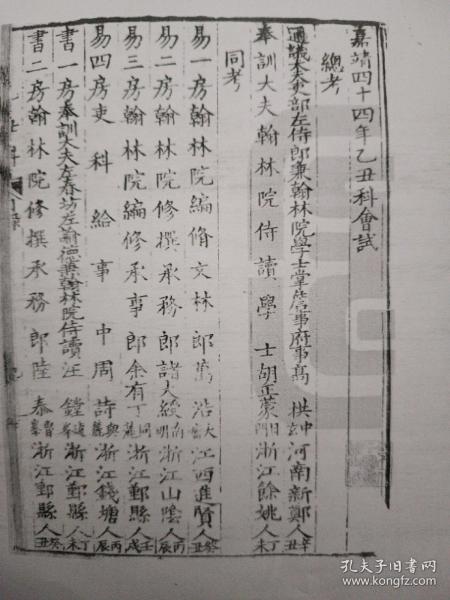 嘉靖四十四年乙丑科會試
總考
通議大夫吏部左侍郎兼翰林院學士掌詹事府事高 拱 河南新鄭人辛丑
奉訓大夫翰林院侍讀學士胡正蒙 浙江餘姚人丁未
同考
易一房翰林院編脩文林郎萬 浩 江西進賢人癸丑
易二房翰林院修撰承務郎諸大綬 南明浙江山陰人丙辰
易三房翰林院編修承事郎余有丁同麓浙江鄞縣人壬戌
易四房吏科給事中周 詩 浙江錢塘人丙辰
書一房奉訓大夫左春坊左諭德兼翰林院侍讀汪 鏜 浙江鄞縣人丁未
書二房翰林院修撰承務郎陸 泰 浙江鄞縣人癸丑
孔夫子旧书网